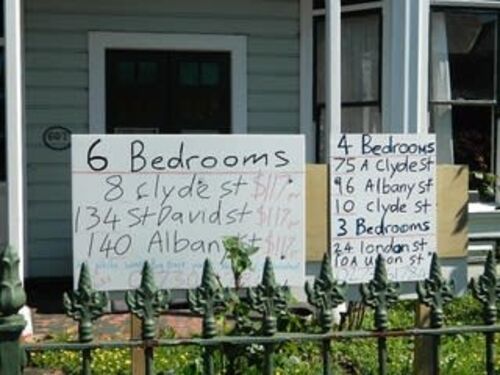 6 Bedrooms
8 Clyde st $117
134 St David st $117
140 Albany st $117
4 Bedrooms
75 A Clyde st
96 Albany st
10 Clyde st
3 Bedrooms
24 london st
10A Union st